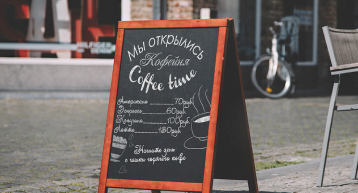 Мы открылись
Кофейня
Coffee time
Американо 70руб
Эспрессо 60руб
Капучино 100руб
Латте 130руб
Начните день
с чашки горячего кофе